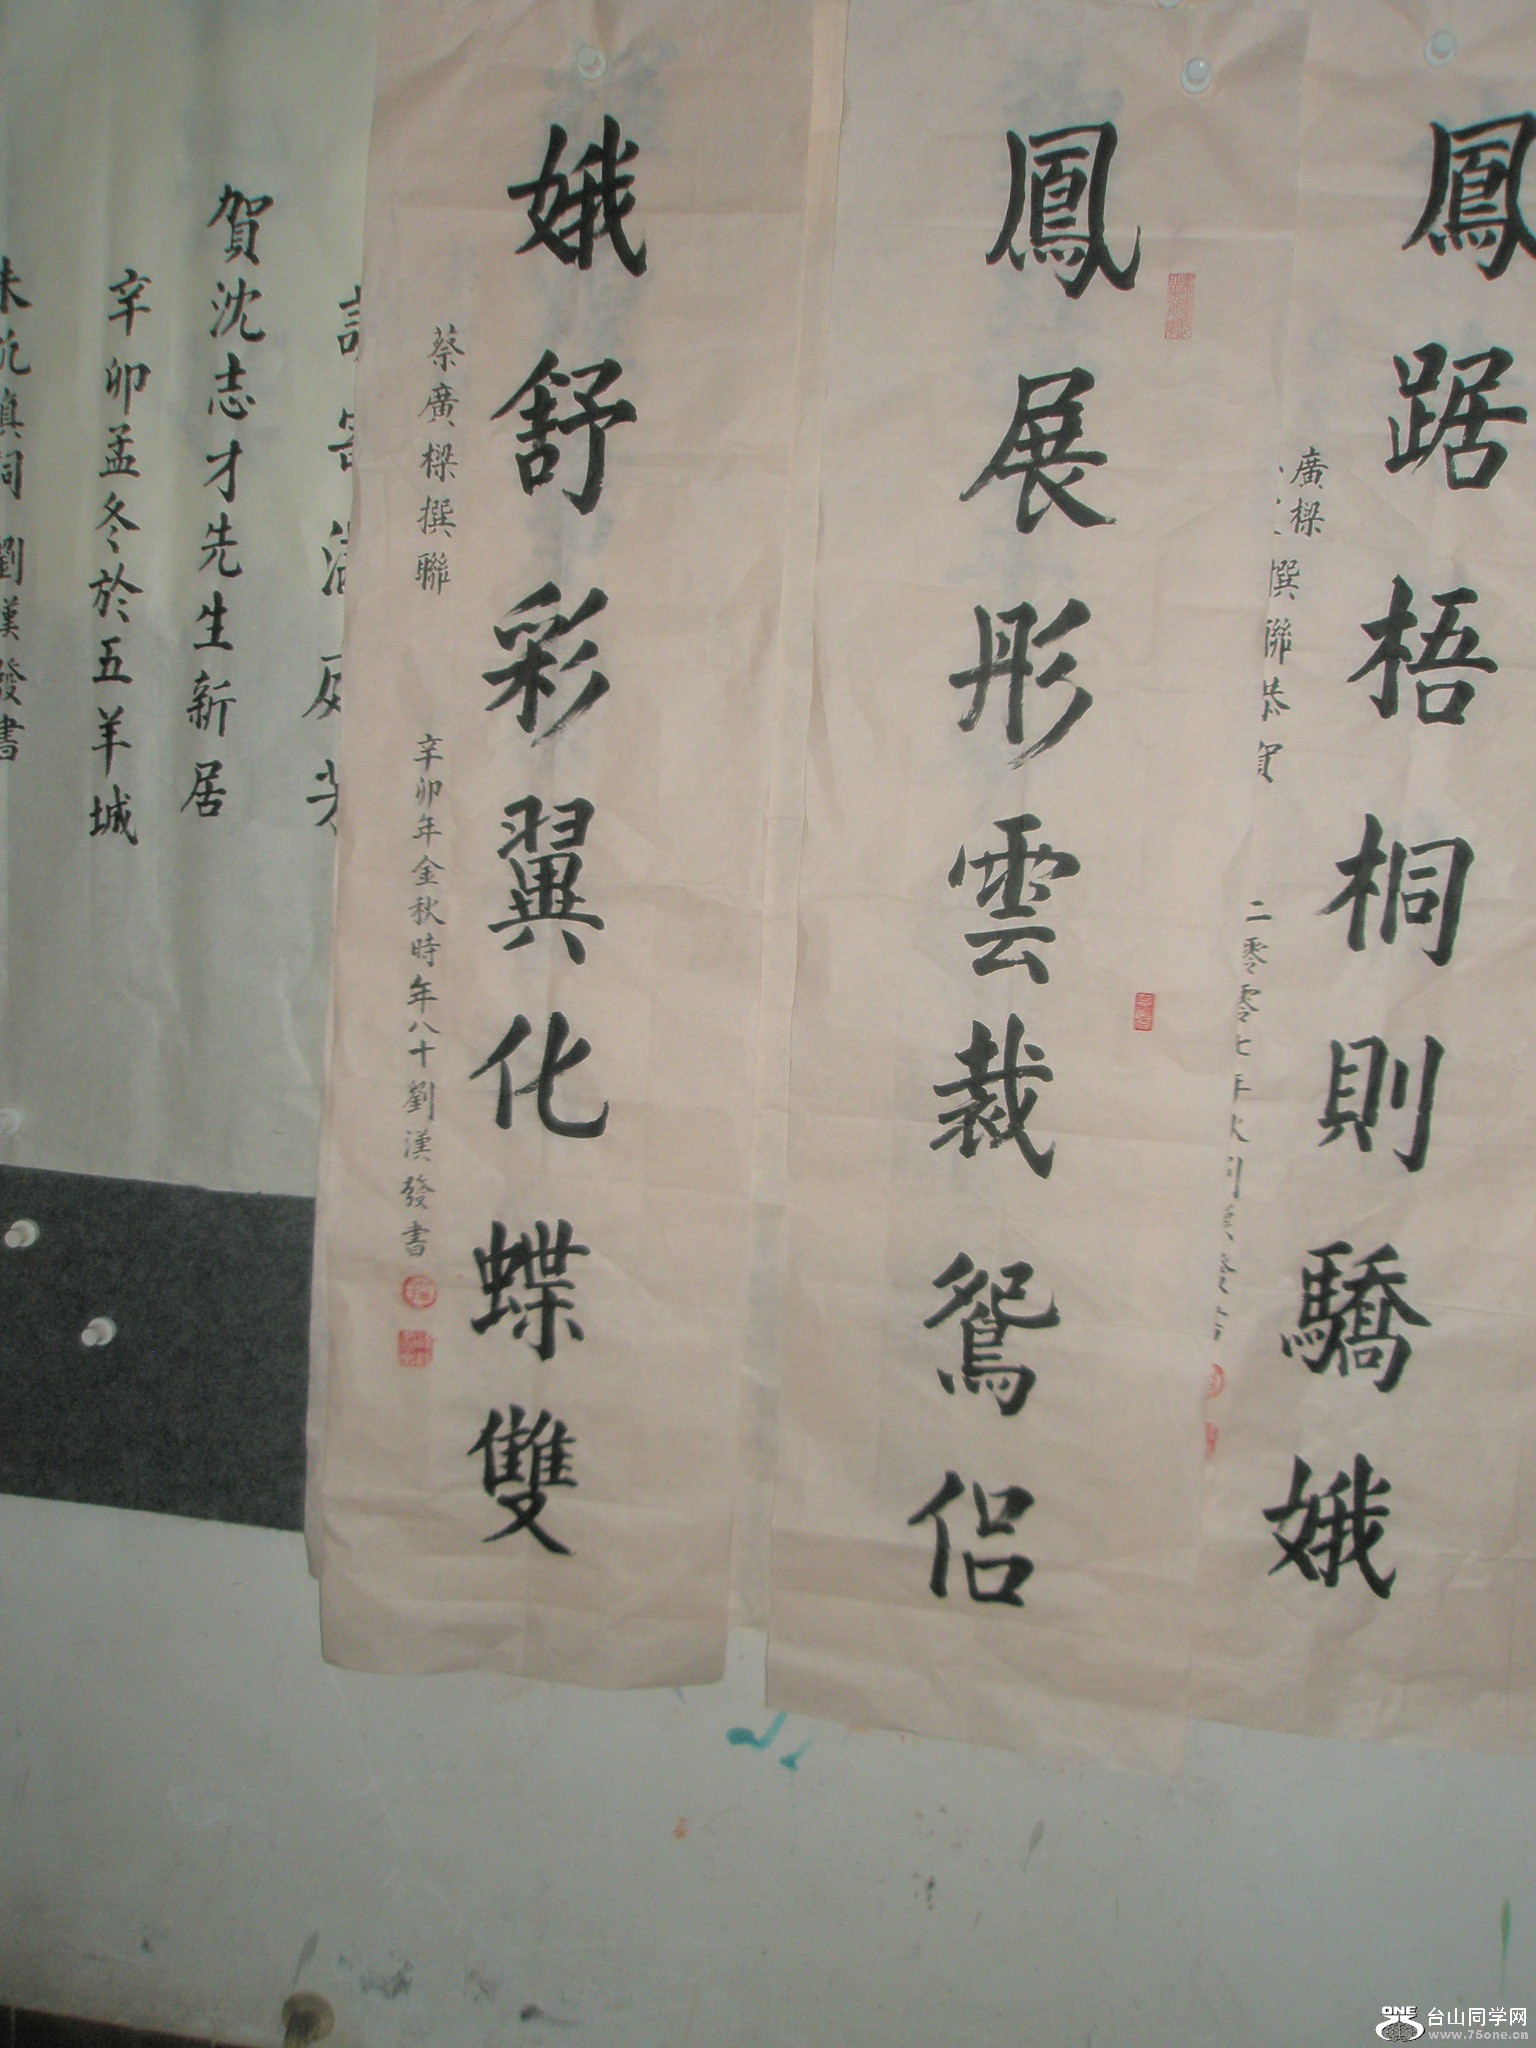 鳳踞梧桐則驕娥
廣樑
撰聯恭賀
二零零七年秋
鳳展彤雲裁鴛侶
娥舒彩翼化蝶雙
蔡廣樑撰聯
辛卯年金秋時年八十劉漢發書
賀沈志才先生新居
辛卯孟冬於五羊城
劉漢發書
ONE 台山同学网
www.75one.cn